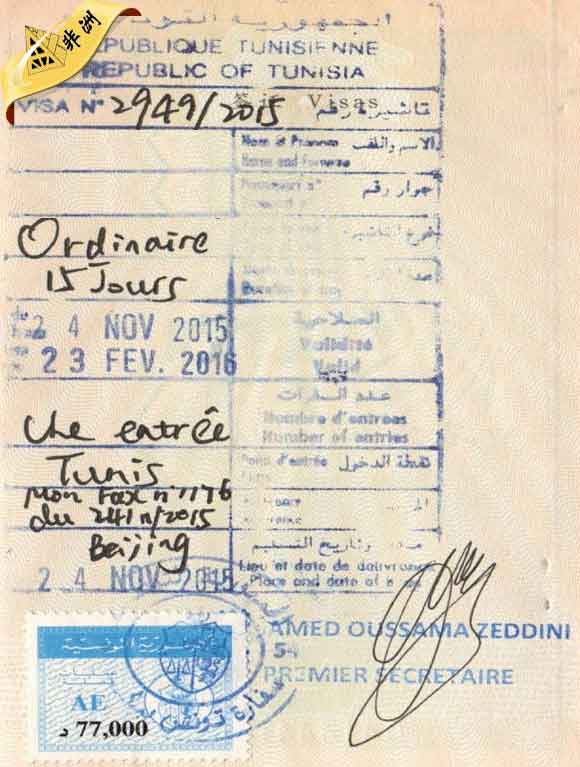 非洲
الجمهورية التونسية
REPUBLIQUE TUNISIENNE
REPUBLIC OF TUNISIA
VISA N° 2949/2015 签证 Visas تاشيرة رقم
Nom et Prénom الاسم واللقب
Name and Forname
Passeport n° جواز رقم
Ordinaire
15 Jours
24 NOV 2015 الصلاحية
Validité
23 FEV. 2016 Valid
عدد المرات
Nombre d'entrees
Une entrée Number of entries
Tunis Point d'entrée نقطة الدخول
Mon Fax n° 1176
du 24/11/2015
Beijing وتاريخ التسليم
Lieu et date de délivrance
24 NOV 2015 Place and date of
AMED OUSSAMA ZEDDINI
PREMIER SECRETAIRE
الجمهورية التونسية
سفارة تونس
AE
77,000 د